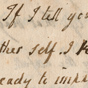 If I tell you
ther self. I
ready to